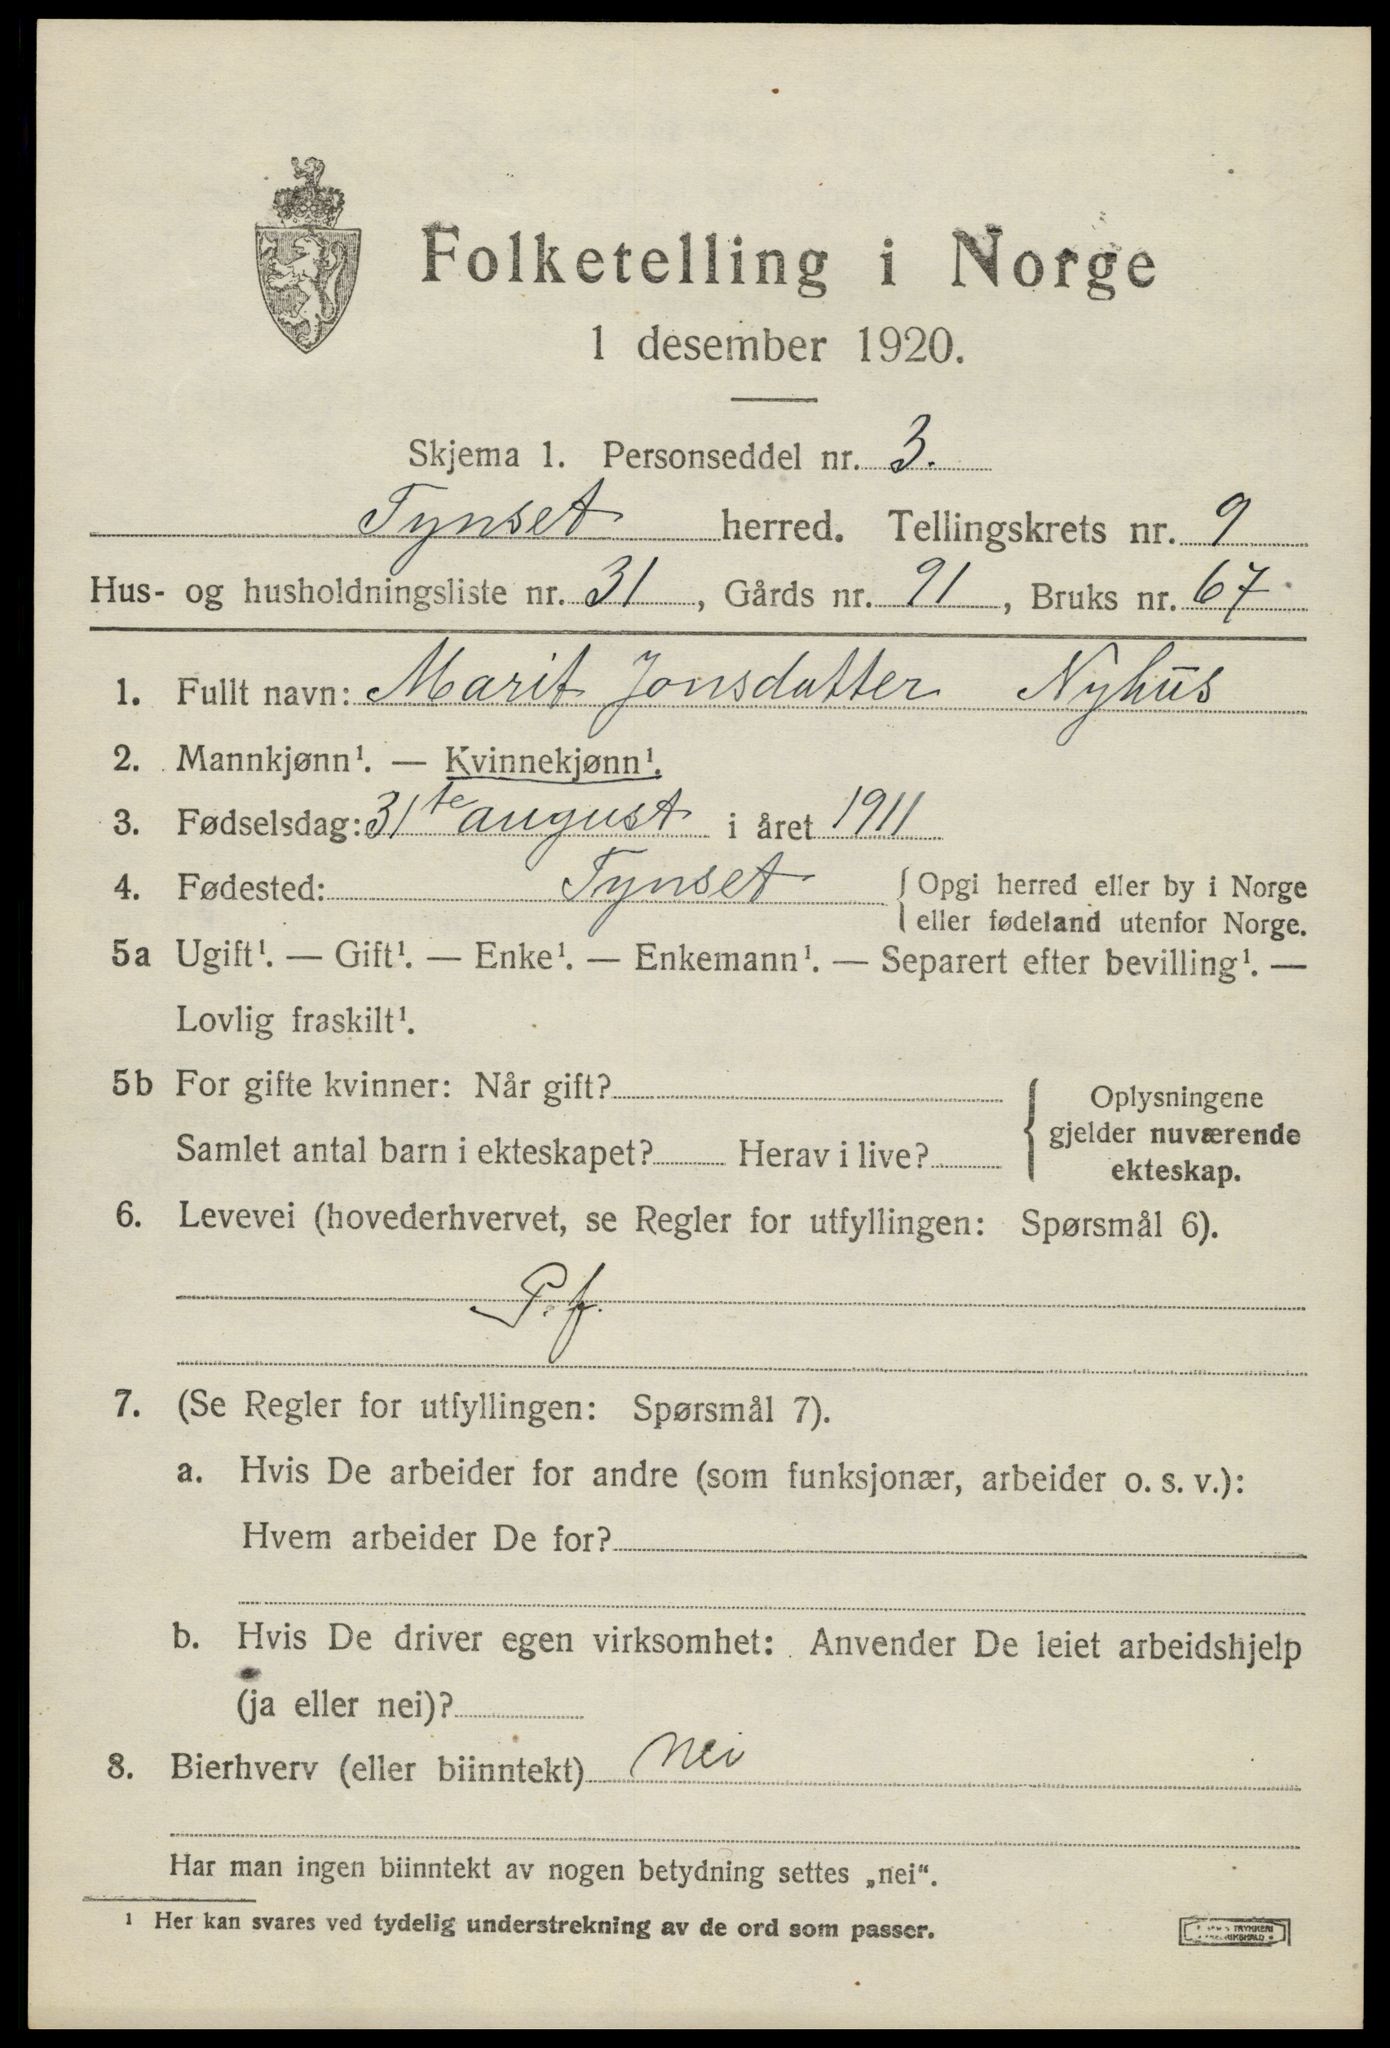 Folketelling i Norge
1 desember 1920.
Skjema 1. Personseddel nr. 3.
Tynset herred. Tellingskrets nr. 9
Hus- og husholdningsliste nr. 31, Gårds nr. 91, Bruks nr. 67
1. Fullt navn: Marit Jonsdatter Nyhus
2. Mannkjønn¹. — Kvinnekjønn¹.
3. Fødselsdag: 31te august i året 1911
4. Fødested: Tynset { Opgi herred eller by i Norge
eller fødeland utenfor Norge.
5a Ugift¹. — Gift¹. — Enke¹. — Enkemann¹. — Separert efter bevilling¹. —
Lovlig fraskilt¹.
5b For gifte kvinner: Når gift?
Samlet antal barn i ekteskapet? Herav i live?
Oplysningene
gjelder nuværende
ekteskap.
6. Levevei (hovederhvervet, se Regler for utfyllingen: Spørsmål 6).
P. f.
7. (Se Regler for utfyllingen: Spørsmål 7).
a. Hvis De arbeider for andre (som funksjonær, arbeider o. s. v.):
Hvem arbeider De for?
b. Hvis De driver egen virksomhet: Anvender De leiet arbeidshjelp
(ja eller nei)?
8. Bierhverv (eller biinntekt) Nei
Har man ingen biinntekt av nogen betydning settes „nei“.
¹ Her kan svares ved tydelig understrekning av de ord som passer.